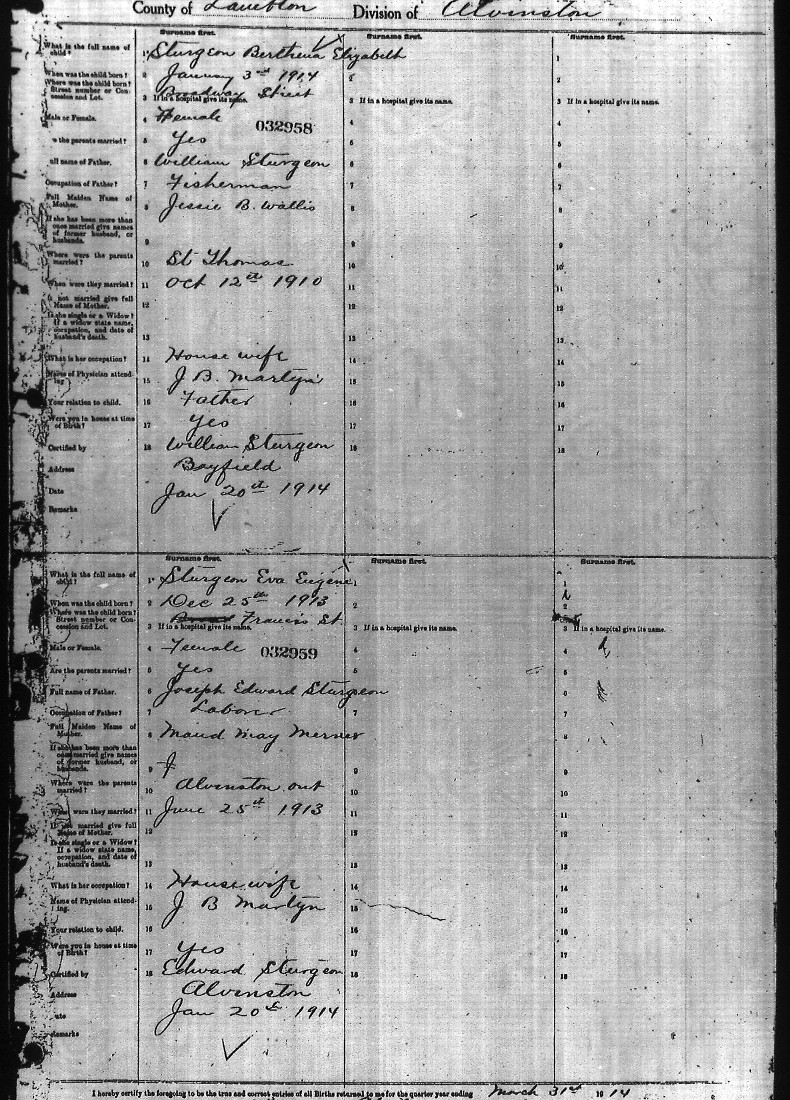 County of Lambton Division of Alvinston
Surname first. Surname first. Surname first.
What is the full name of child? 1 Sturgeon Berthena Elizabeth 1
When was the child born? 2 January 3rd 1914 2 2
Where was the child born? Street number or Concession and Lot. Broadway Street
3 If in a hospital give its name. 3 If in a hospital give its name. 3 If in a hospital give its name.
Male or Female. 4 Female 032958 4 4
the parents married? 5 Yes 5 5
ull name of Father. 6 William Sturgeon 6 6
Occupation of Father? 7 Fisherman 7 7
Full Maiden Name of Mother. 8 Jessie B. Wallis 8 8
If she has been more than once married give names of former husband, or husbands. 9 9 9
Where were the parents married? 10 St Thomas 10 10
When were they married? 11 Oct 12th 1910 11 11
If not married give full Name of Mother. 12 12 12
Is she single or a Widow? If a widow state name, occupation, and date of husband's death. 13 13 13
What is her occupation? 14 House wife 14 14
Name of Physician attending 15 J B. Martyn 15 15
Your relation to child. 16 Father 16 16
Were you in house at time of Birth? 17 Yes 17 17
Certified by 18 William Sturgeon 18 18
Address Bayfield
Date Jan 20th 1914
Remarks
Surname first. Surname first. Surname first.
What is the full name of child? 1 Sturgeon Eva Eugene 1 1
When was the child born? 2 Dec 25th 1913 2 2
Where was the child born? Street number or Concession and Lot. Francis St.
3 If in a hospital give its name. 3 If in a hospital give its name. 3 If in a hospital give its name.
Male or Female. 4 Female 032959 4 4
Are the parents married? 5 Yes 5 5
Full name of Father. 6 Joseph Edward Sturgeon 6 6
Occupation of Father? 7 Labour 7 7
Full Maiden Name of Mother. 8 Maud May 8 8
If she has been more than once married give names of former husband, or husbands. 9 9 9
Where were the parents married? 10 Alvinston ont 10 10
When were they married? 11 June 25th 1913 11 11
If not married give full Name of Mother. 12 12 12
Is she single or a Widow? If a widow state name, occupation, and date of husband's death. 13 13 13
What is her occupation? 14 House wife 14 14
Name of Physician attending. 15 J B Martyn 15 15
Your relation to child. 16 16 16
Were you in house at time of Birth? 17 Yes 17 17
Certified by 18 Edward Sturgeon 18 18
Address Alvinston
ate Jan 20th 1914
Remarks
I hereby certify the foregoing to be the true and correct entries of all Births returned to me for the quarter year ending March 31st 1914